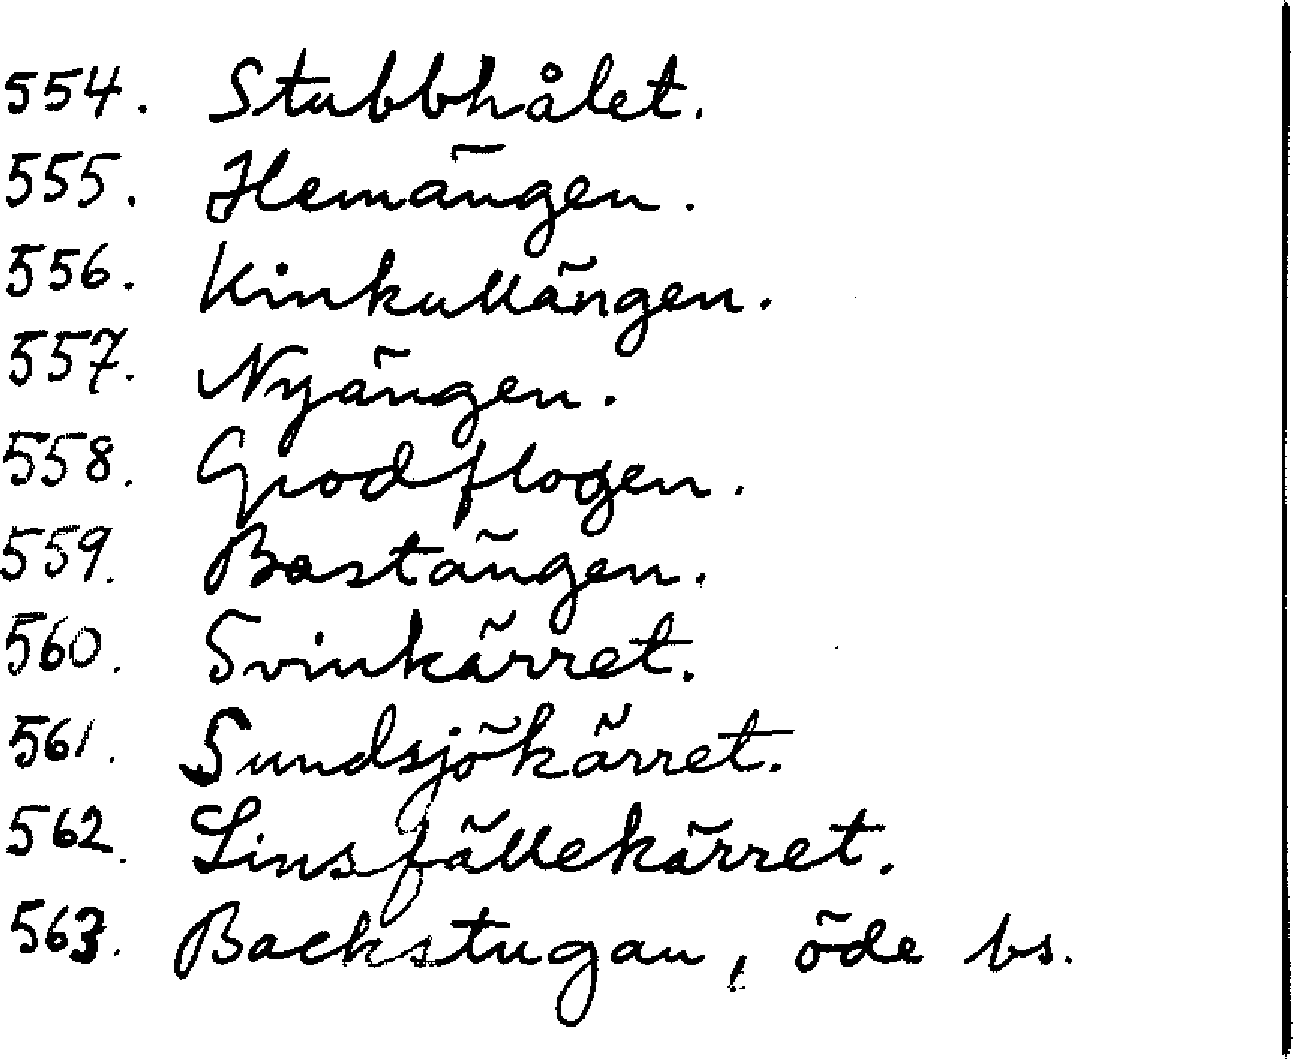 554. Stubbhålet.
555. Hemängen.
556. Kinkullängen.
557. Nyängen.
558. Grodflogen.
559. Bastängen.
560. Svinkärret.
561. Sundsjökärret.
562. Linsfällekärret.
563. Backstugan, öde bs.